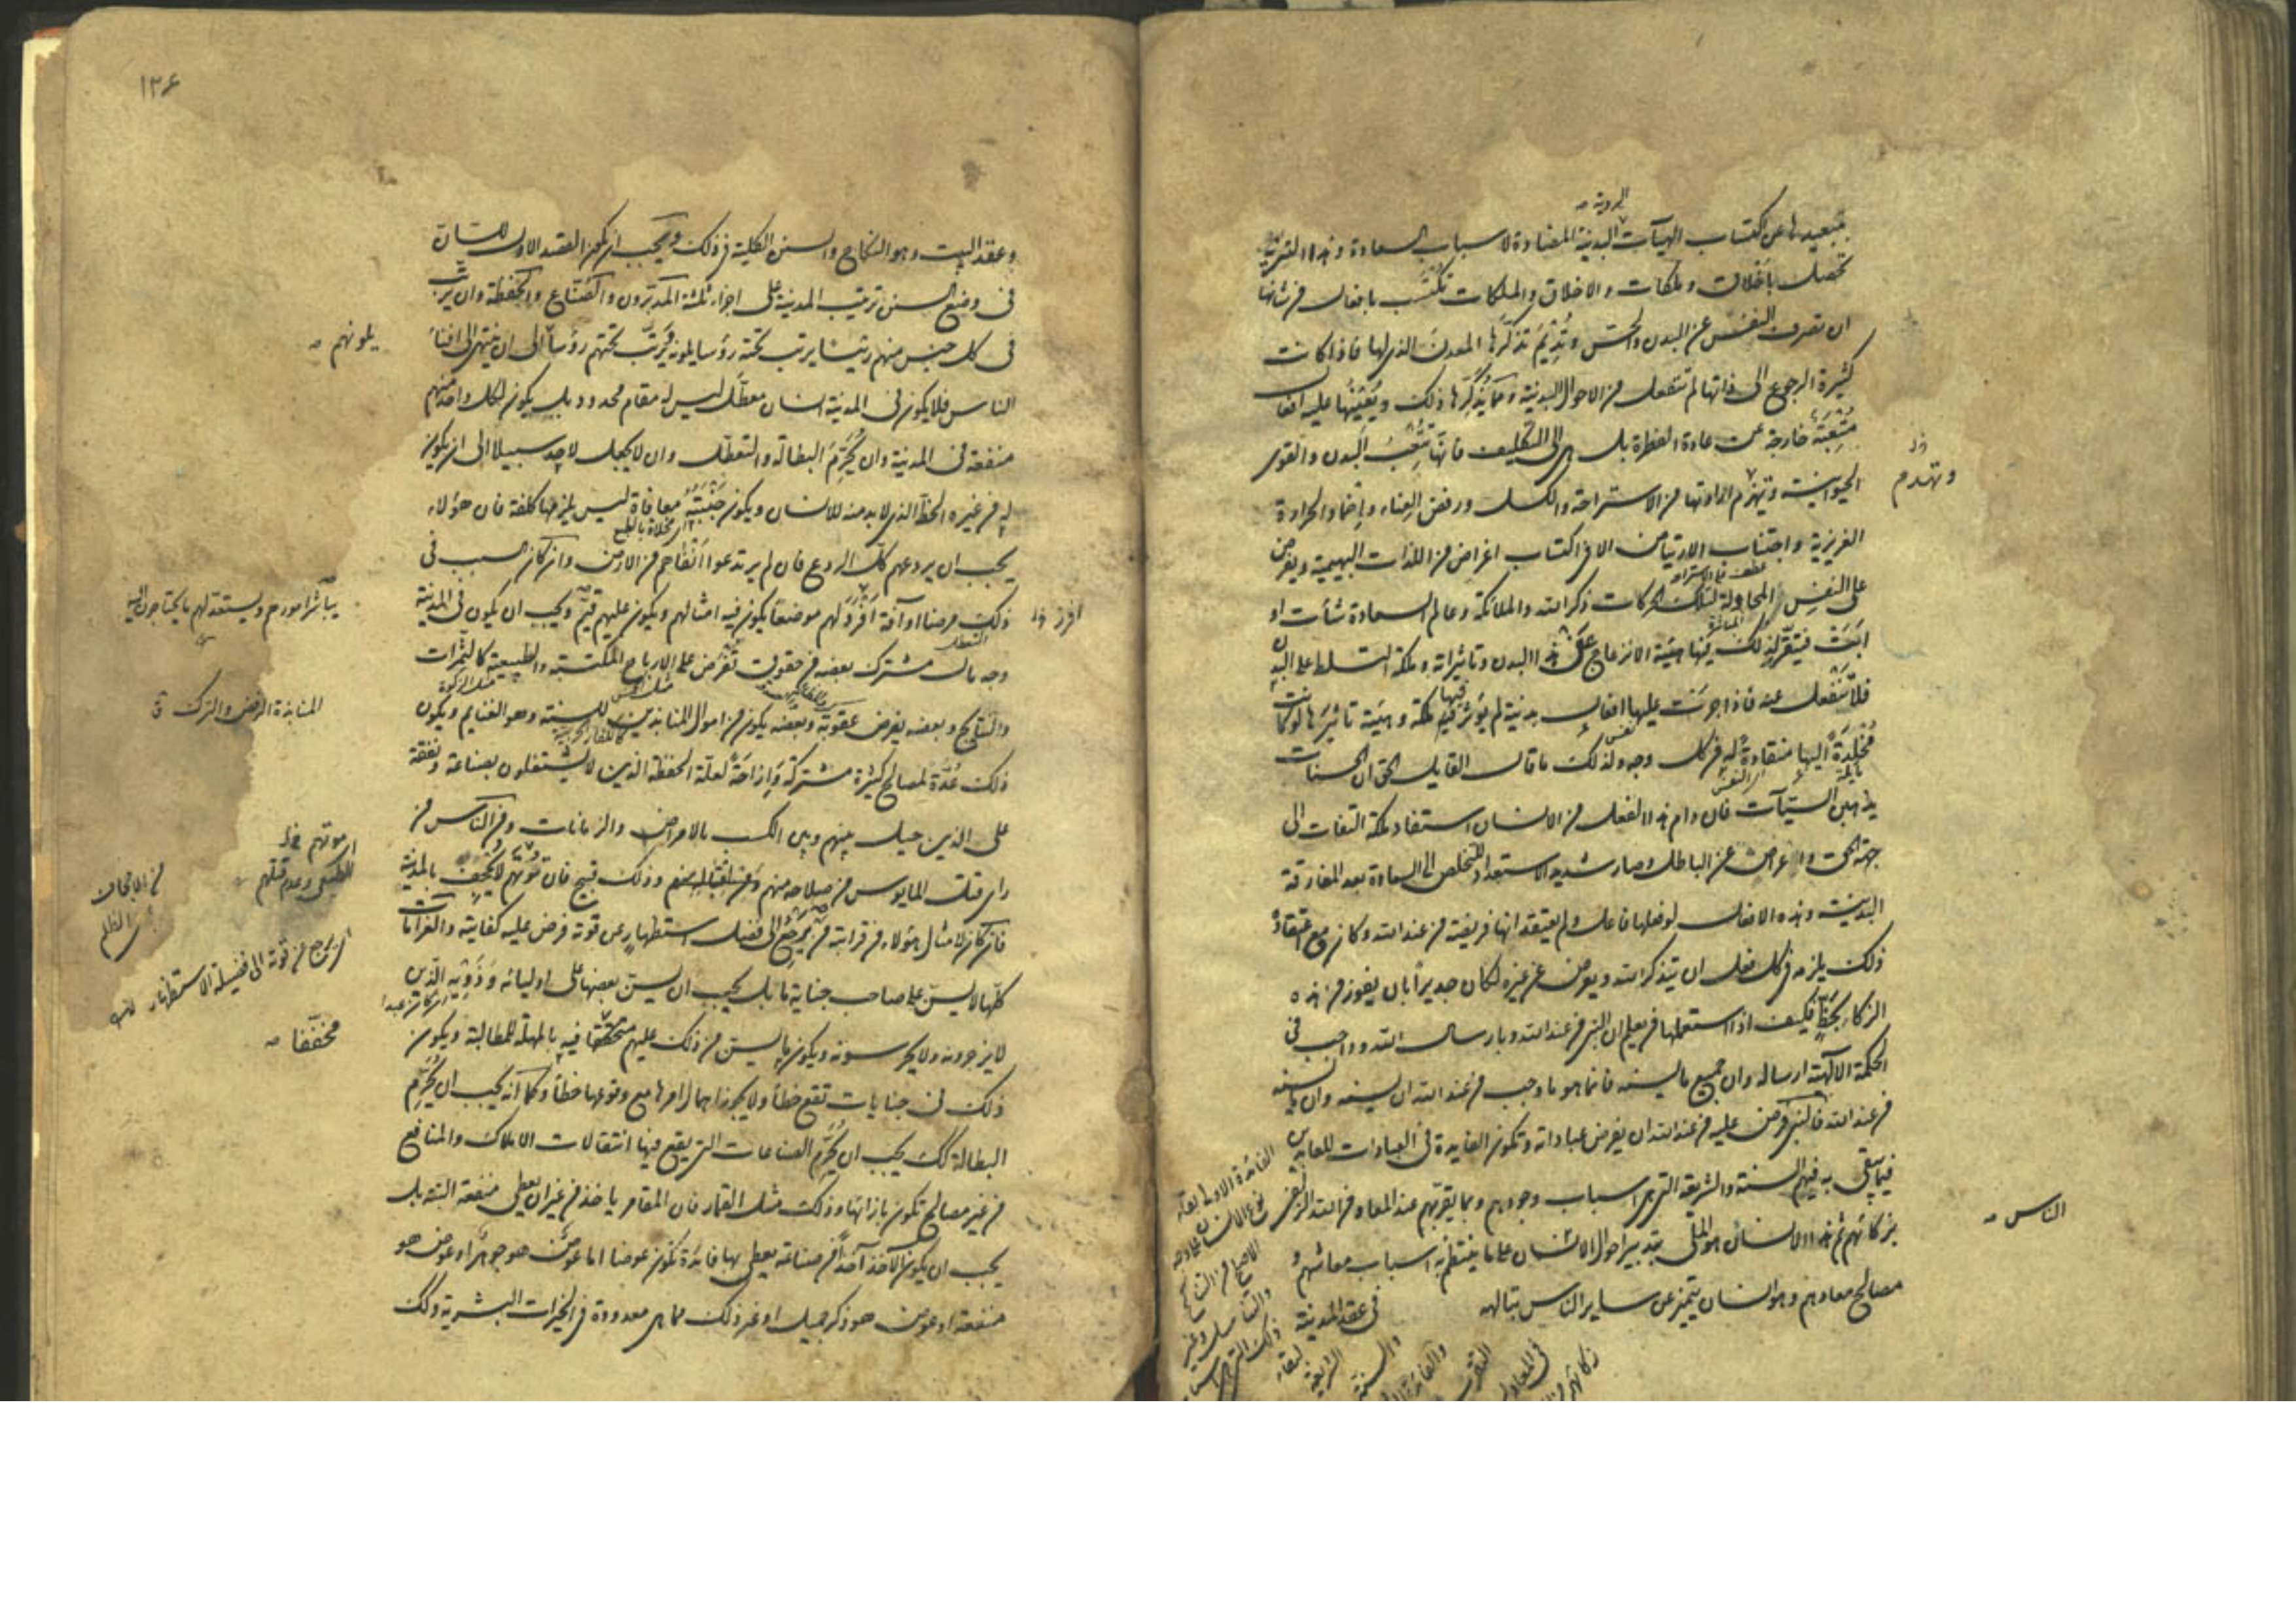 الردية
تبعيدها عن اكتساب الهيآت البدنية المضادة لاسباب السعادة وهذا التنزيه
تحصل باخلاق وملكات والاخلاق والملكات تكتسب بافعال من شانها
ان تصرف النفس عن البدن والحس وتديم تذكرها المعدن الذى لها فاذا كانت
كثيرة الرجوع الى ذاتها لم تنفعل من الاحوال البدنية ومما يذكرها ذلك ويعينها عليه افعال
متعبة خارجة عن عادة الفطرة بل هى الى التكليف فانها تتعب البدن والقوى
الحيوانية وتهزم ارادتها من الاستراحة والكسل ورفض العناء واخماد الحرارة
الغريزية واجتناب الارتياض الا فى اكتساب اغراض من اللذات البهيمية ويفرض
على النفس المحاولة لتلك الحركات ذكر الله والملائكة وعالم السعادة شأت او
ابت فيتقرر لذلك فيها هيئة الانزعاج عن هذا البدن وتاثيراته وملكة التسلط على البدن
فلا تنفعل عنه فاذا جرت عليها افعال بدنية لم يؤثر فيها ملكة وهيئة تاثيرها لو كانت
مخلدة اليها منقادة له من كل وجه ولذلك ما قال القايل الحق ان الحسنات
يذهبن السيآت فان دام هذا الفعل من الانسان استفاد ملكة التفات الى
جهة الحق واعراض عن الباطل وصار شديد الاستعداد للتخلص الى السعادة بعد المفارقة
البدنية وهذه الافعال لو فعلها فاعل ولم يعتقد انها فريضة من عند الله وكان مع اعتقاده
ذلك يلزمه فى كل فعل ان يتذكر الله ويعرض عن غيره لكان جديرا بان يفوز من هذه
الزكاء بحظ فكيف اذا استعملها من يعلم ان النبى من عند الله وبارسال الله وواجب فى
الحكمة الالهية ارساله وان جميع ما يسنه فانما هو ما وجب من عند الله ان يسنه وان ما يسنه
من عند الله فالنبى فرض عليه من عند الله ان يفرض عباداته وتكون الفايدة فى العبادات للعابدين
فيما يبقى به فيهم السنة والشريعة التى هى اسباب وجودهم وبما يقربهم عند المعاد من الله زلفى
بزكائهم ثم هذا الانسان هو الملى بتدبير احوال الانسان على ما ينتظم به اسباب معاشهم و
مصالح معادهم وهو انسان يتميز عن ساير الناس بتالهه
فى عقد المدينة
وتهدم
الناس
١٣٤
وعقد البيت وهو النكاح والسنن الكلية فى ذلك ويجب ان يكون القصد الاول للسان
فى وضع السنن ترتيب المدينة على اجزاء ثلثة المدبرون والصناع والحفظة وان يرتب
فى كل جنس منهم رئيسا يرتب تحته رؤسا يلونه يرتب تحتهم رؤسا الى ان ينتهى الى افناء
الناس فلا يكون فى المدينة انسان معطل ليس له مقام محدود بل يكون لكل واحد منهم
منفعة فى المدينة وان يحرم البطالة والتعطل وان لا يجعل لاحد سبيلا الى ان يكون
له من غيره الحظ الذى لا بد منه للانسان ويكون جنبته معافاة ليس يلزمها كلفة فان هؤلاء
يجب ان يردعهم كل الردع فان لم يرتدعوا انفاهم من الارض وان كان السبب فى
ذلك مرضا او آفة افرد لهم موضعا يكون فيه امثالهم ويكون عليهم قيم ويجب ان يكون فى المدينة
وجه مال مشترك بعضه من حقوق تفرض على الارباح المكتسبة والطبيعية كالثمرات
والنتايج وبعضه يفرض عقوبة وبعضه يكون من اموال المنابذين للسنة وهو الغنايم ويكون
ذلك عدة لمصالح كثيرة مشتركة وازاحة لعلة الحفظة الذين لا يشتغلون بصناعة ونفقة
على الذين حيل بينهم وبين الكسب بالامراض والزمانات ومن الناس من
راى قتل المايوس من صلاحه منهم وذلك قبيح فان قوتهم لا يجحف بالمدينة
فان كان لامثال هؤلاء من قرابة من يرجع الى فضل استظهار من قوته فرض عليه كفايته والغرامات
كلها لا يسن على صاحب جناية ما بل يجب ان يسن بعضها على اوليائه وذويه الذين
لا يزجرونه ولا يحرسونه ويكون ما يسن من ذلك عليهم مخففا فيه بالمهلة للمطالبة ويكون
ذلك فى جنايات تقع خطأ ولا يجوز اهمال امرها مع وقوعها خطأ وكما انه يجب ان يحرم
البطالة كك يجب ان يحرم الصناعات التى يقع فيها انتقالات الاملاك والمنافع
من غير مصالح تكون بازائها وذلك مثل القمار فان المقامر ياخذ من غير ان يعطى منفعة البتة بل
يجب ان يكون الآخذ آخذا من صناعة يعطى بها فائدة تكون عوضا اما عوض هو جوهر او عوض هو
منفعة او عوض هو ذكر جميل او غير ذلك مما هى معدودة فى الخيرات البشرية وكك
يلونهم
يباشر امورهم ويستعد لهم ما يحتاجون اليه
المنابذة الرفض والترك
مخففا